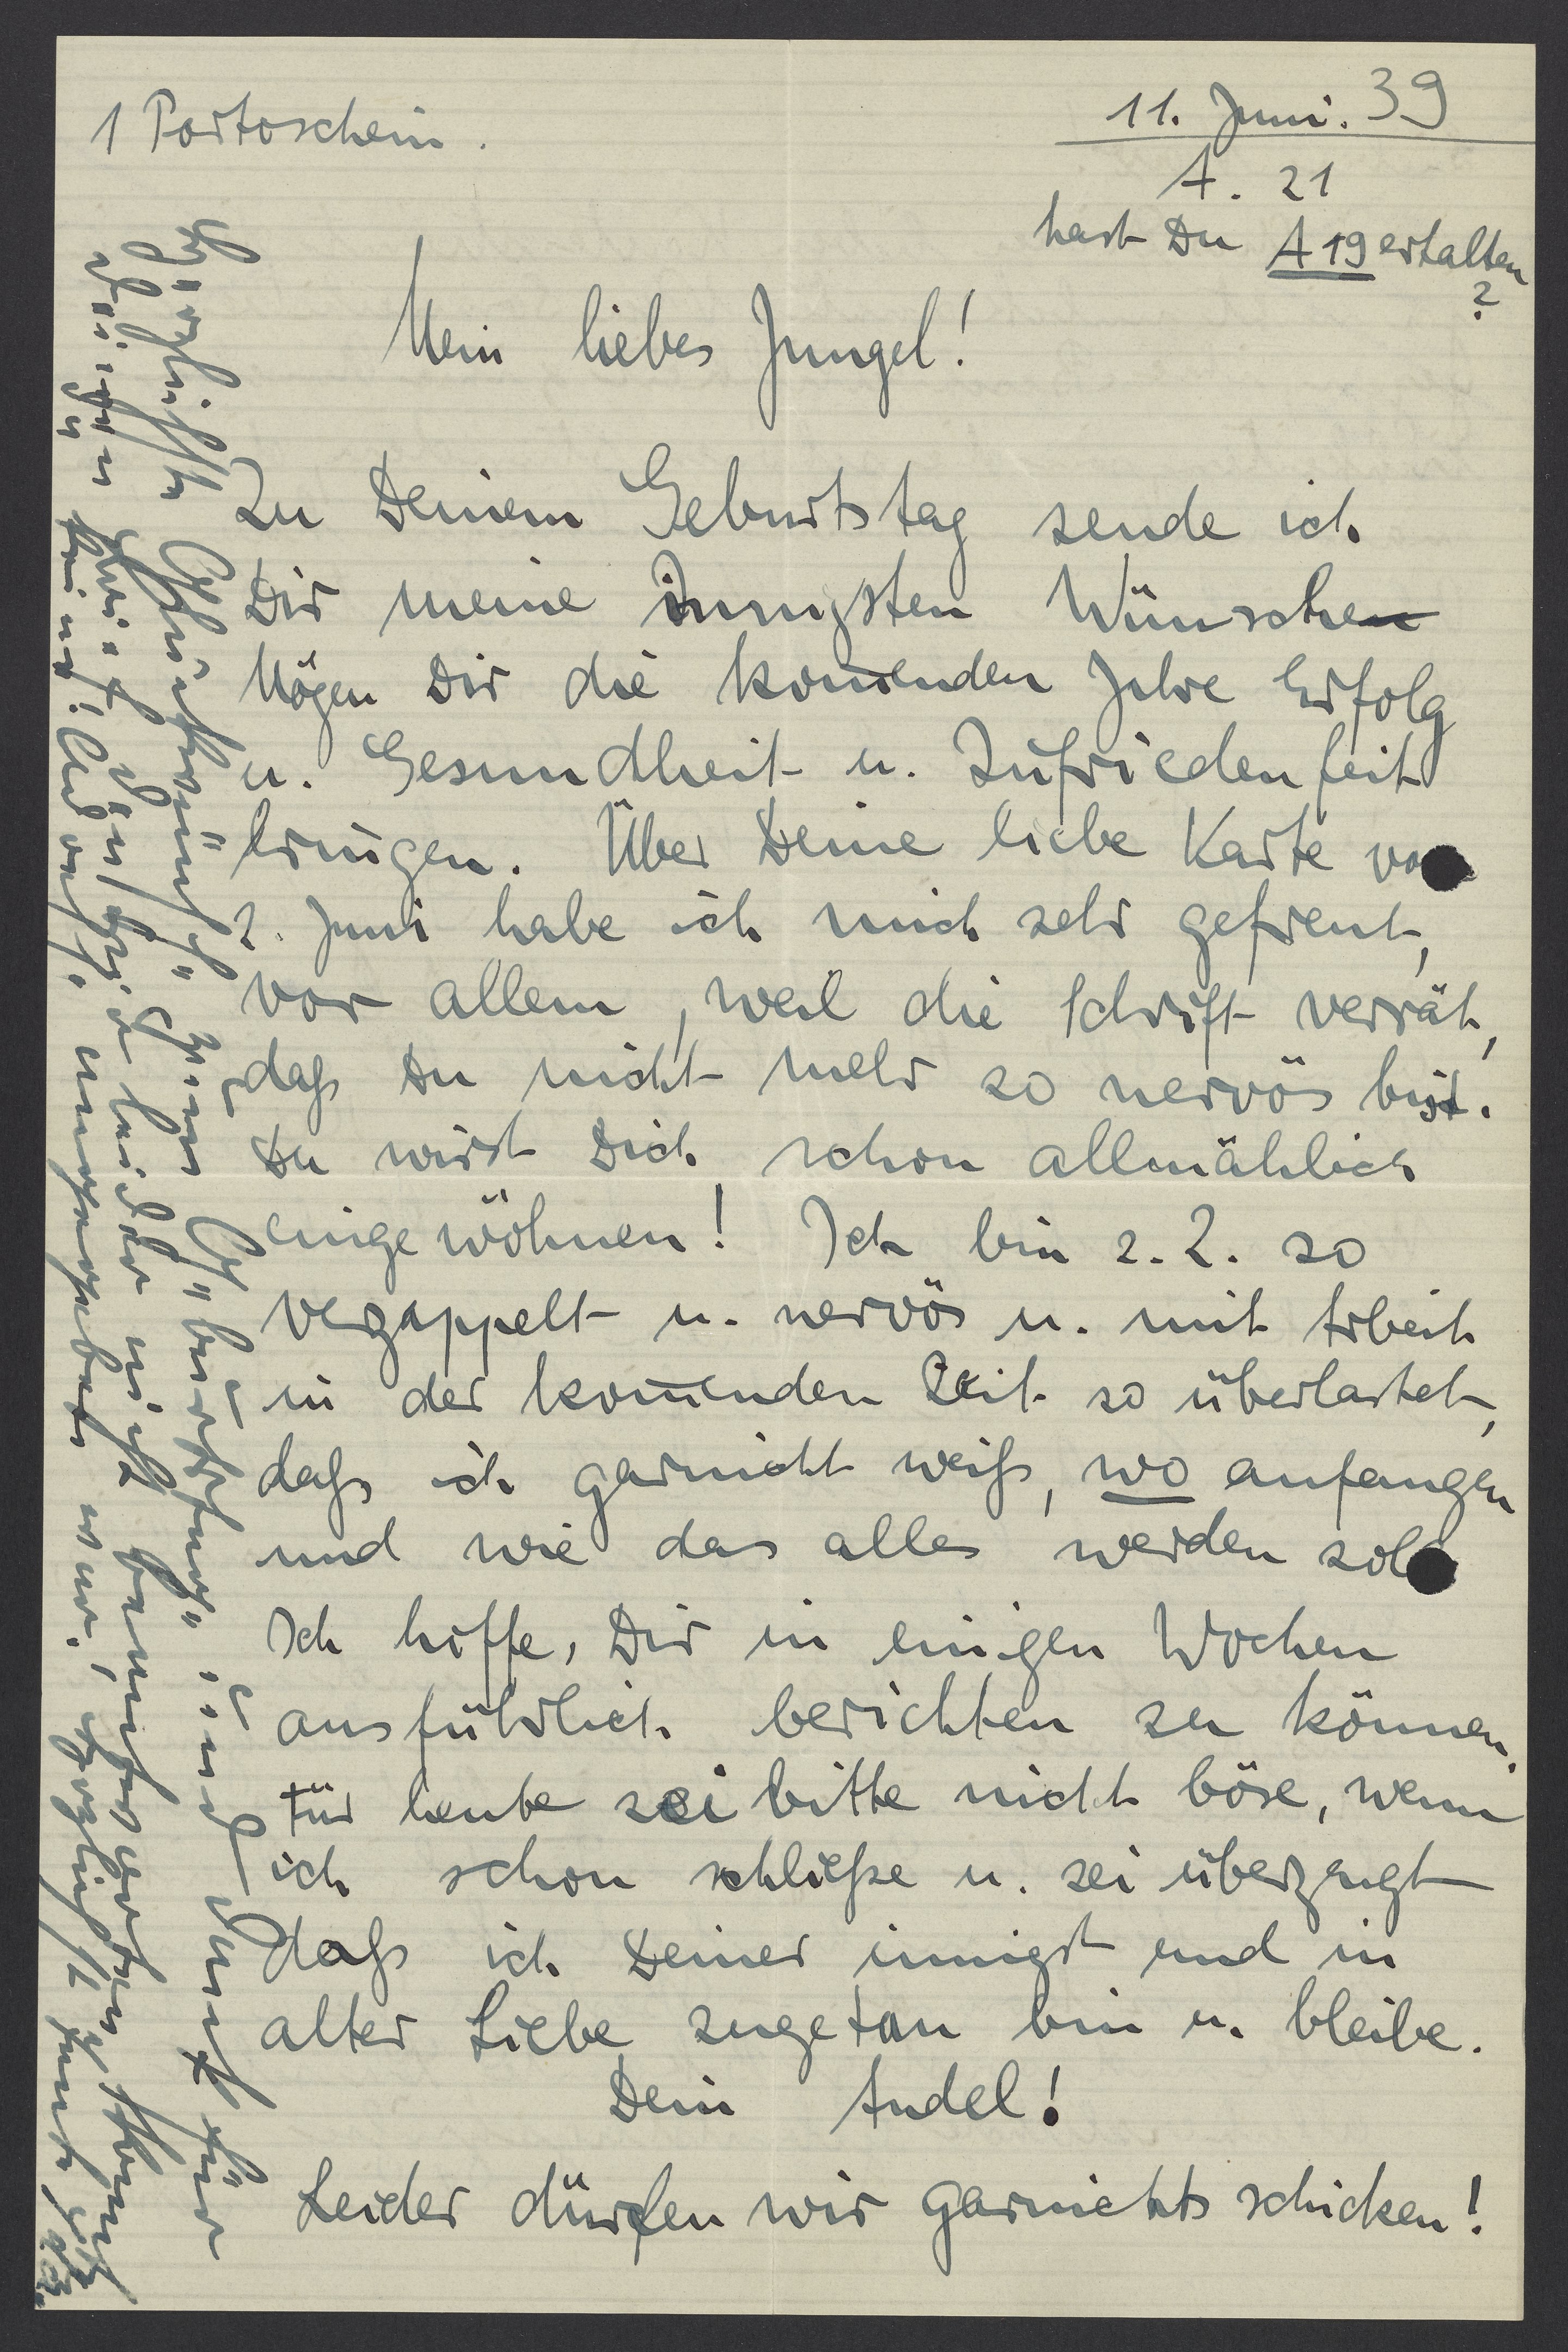 1 Portoschein.
11. Juni. 39
A. 21
hast Du A 19 erhalten
?
Mein liebes Jungel!
Zu Deinem Geburtstag sende ich
Dir meine innigsten Wünsche
Mögen Dir die kom̅enden Jahre Erfolg
u. Gesundheit u. Zufriedenheit
bringen. Über Deine liebe Karte vo
2. Juni habe ich mich sehr gefreut,
vor allem, weil die Schrift verrät,
daß Du nicht mehr so nervös bist.
Du wirst Dich schon allmählich
eingewöhnen! Ich bin z. Z. so
verzappelt u. nervös u. mit Arbeit
in der kom̅enden Zeit so überlastet,
daß ich garnicht weiß, wo anfangen
und wie das alles werden sol
Ich hoffe, Dir in einigen Wochen
ausführlich berichten zu können.
Für heute sei bitte nicht böse, wenn
ich schon schließe u. sei überzeugt
daß ich Deiner innigst und in
alter Liebe zugetan bin u. bleibe.
Dein Andel!
Leider dürfen wir garnichts schicken!
Herzlichste Glückwünsche zum Geburtstag und Dank für
Deinen Brief, den ich leider nicht beantworten